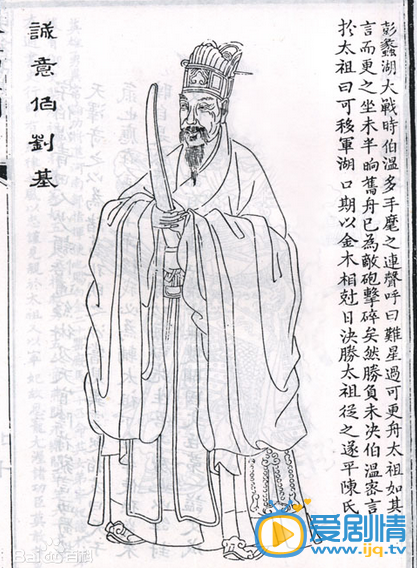 彭蠡湖大戰時伯溫多手麾之連聲呼曰難星過可更舟太祖如其
言而更之坐未半晌舊舟已為敵砲擊碎矣然勝負未決伯溫密言
於太祖曰可移軍湖口期以金木相尅日決勝太祖從之遂平陳氏
誠意伯劉基
Bai百科
爱剧情
www.ijq.tv